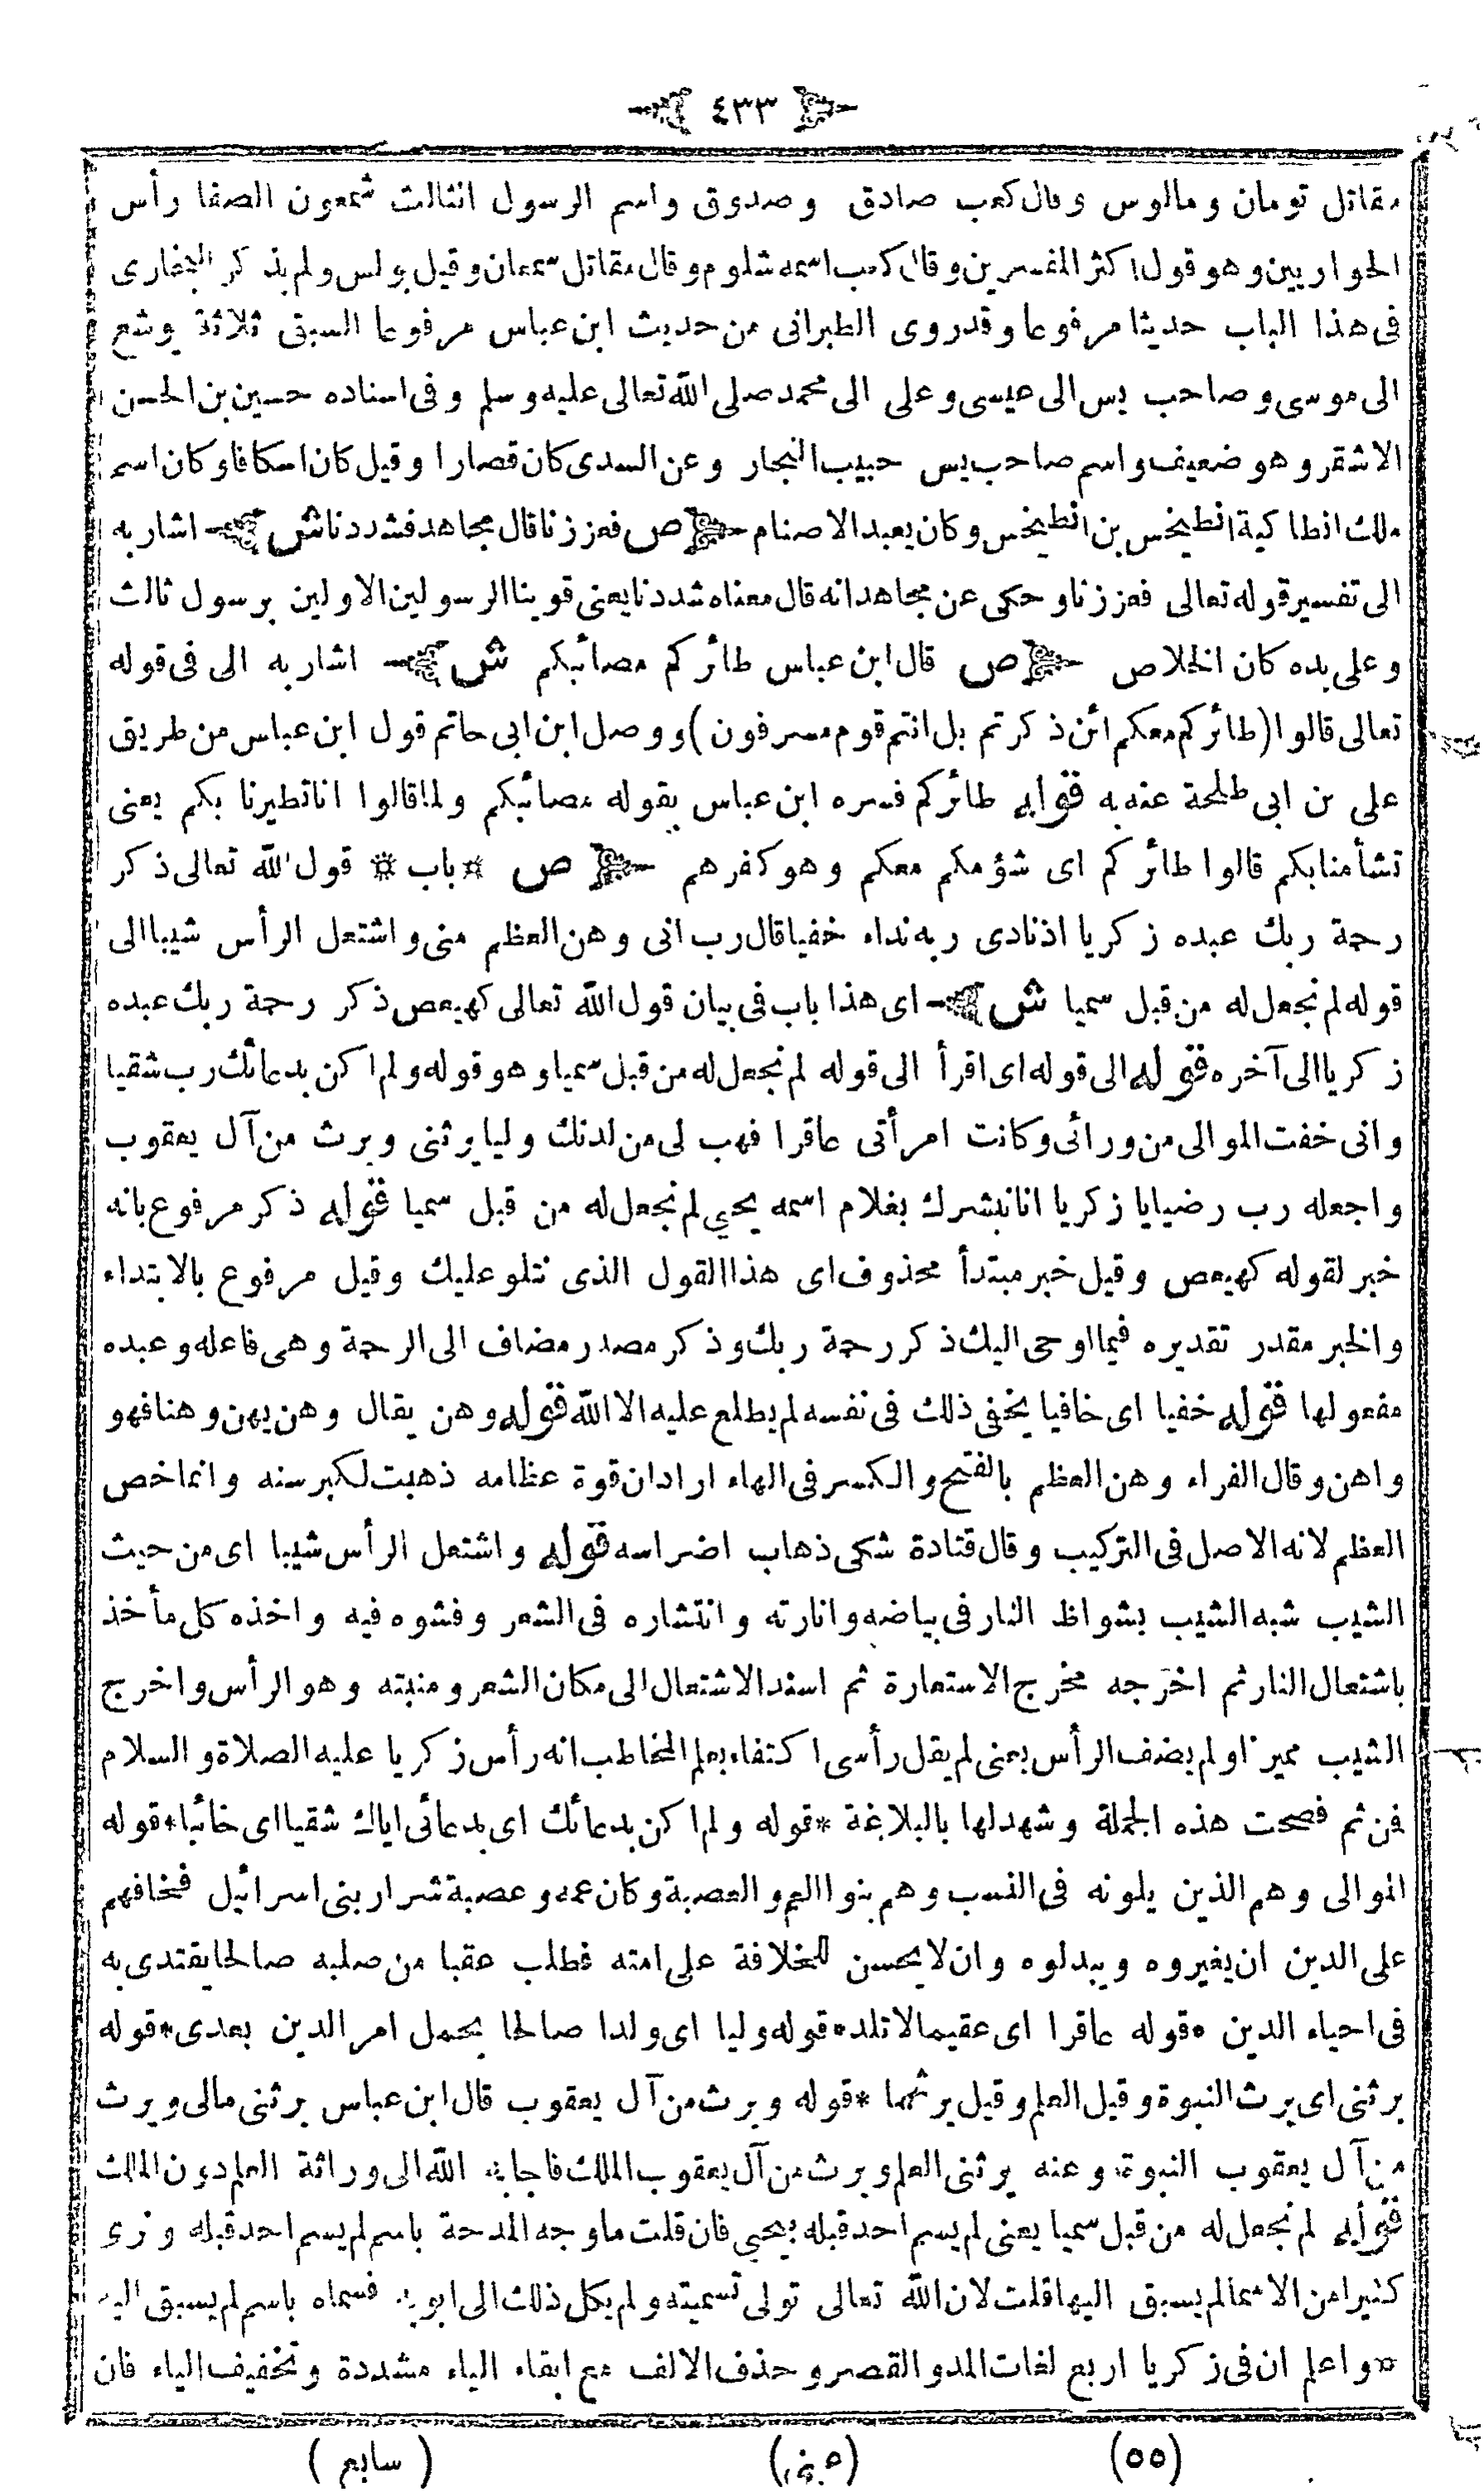 ٤٣٣
مقاتل تومان ومالوس وقال كعب صادق وصدوق واسم الرسول الثالث شمعون الصفا رأس
الحواريين وهو قول اكثر المفسرين وقال كعب اسمه شلوم وقال مقاتل سمعان وقيل بولس ولم يذكر البخارى
فى هذا الباب حديثا مرفوعا وقدروى الطبرانى من حديث ابن عباس مرفوعا السبق ثلاثة يوشع
الى موسى وصاحب يس الى عيسى وعلى الى محمد صلى الله تعالى عليه وسلم وفى اسناده حسين بن الحسن
الاشقر وهو ضعيف واسم صاحب يس حبيب النجار وعن السدى كان قصارا وقيل كان اسكافا وكان اسم
ملك انطاكية انطيخس بن انطيخس وكان يعبد الاصنام ص فعززنا قال مجاهد فشددنا ش اشار به
الى تفسير قوله تعالى فعززنا وحكى عن مجاهد انه قال معناه شددنا يعنى قوينا الرسولين الاولين برسول ثالث
وعلى يده كان الخلاص ص قال ابن عباس طائركم مصائبكم ش اشار به الى فى قوله
تعالى قالوا (طائركم معكم ائن ذكرتم بل انتم قوم مسرفون) ووصل ابن ابى حاتم قول ابن عباس من طريق
على بن ابى طلحة عنه به قوله طائركم فسره ابن عباس بقوله مصائبكم ولما قالوا اناتطيرنا بكم يعنى
تشأمنابكم قالوا طائركم اى شؤمكم معكم وهو كفرهم ص * باب * قول الله تعالى ذكر
رحمة ربك عبده زكريا اذنادى ربه نداء خفيا قال رب انى وهن العظم منى واشتعل الرأس شيبا الى
قوله لم نجعل له من قبل سميا ش اى هذا باب فى بيان قول الله تعالى كهيعص ذكر رحمة ربك عبده
زكريا الى آخره قوله الى قوله اى اقرأ الى قوله لم نجعل له من قبل سميا وهو قوله ولم اكن بدعائك رب شقيا
وانى خفت الموالى من ورائى وكانت امرأتى عاقرا فهب لى من لدنك وليا يرثنى ويرث من آل يعقوب
واجعله رب رضيا يا زكريا انانبشرك بغلام اسمه يحيى لم نجعل له من قبل سميا قوله ذكر مرفوع بانه
خبر لقوله كهيعص وقيل خبر مبتدأ محذوف اى هذا القول الذى نتلو عليك وقيل مرفوع بالابتداء
والخبر مقدر تقديره فيما اوحى اليك ذكر رحمة ربك وذكر مصدر مضاف الى الرحمة وهى فاعله وعبده
مفعولها قوله خفيا اى خافيا يخفى ذلك فى نفسه لم يطلع عليه الا الله قوله وهن يقال وهن يهن وهنا فهو
واهن وقال الفراء وهن العظم بالفتح والكسر فى الهاء اراد ان قوة عظامه ذهبت لكبر سنه وانما خص
العظم لانه الاصل فى التركيب وقال قتادة شكى ذهاب اضراسه قوله واشتعل الرأس شيبا اى من حيث
الشيب شبه الشيب بشواظ النار فى بياضه وانارته وانتشاره فى الشعر وفشوه فيه واخذه كل مأخذ
باشتعال النار ثم اخرجه مخرج الاستعارة ثم اسند الاشتعال الى مكان الشعر ومنبته وهو الرأس واخرج
الشيب مميزا ولم يضف الرأس يعنى لم يقل رأسى اكتفاء بعلم المخاطب انه رأس زكريا عليه الصلاة والسلام
فمن ثم فصحت هذه الجملة وشهد لها بالبلاغة * قوله ولم اكن بدعائك اى بدعائى اياك شقيا اى خائبا * قوله
الموالى وهم الذين يلونه فى النسب وهم بنوا العم والعصبة وكان عمه وعصبة شرار بنى اسرائيل فخافهم
على الدين ان يغيروه ويبدلوه وان لا يحسن للخلافة على امته فطلب عقبا من صلبه صالحا يقتدى به
فى احياء الدين * قوله عاقرا اى عقيما لاتلد * قوله وليا اى ولدا صالحا يحمل امر الدين بعدى * قوله
يرثنى اى يرث النبوة وقيل العلم وقيل يرثهما * قوله ويرث من آل يعقوب قال ابن عباس يرثنى مالى ويرث
من آل يعقوب النبوة وعنه يرثنى العلم ويرث من آل يعقوب الملك فاجابه الله الى وراثة العلم دون الملك
قوله لم نجعل له من قبل سميا يعنى لم يسم احد قبله بيحيى فان قلت ماوجه المدحة باسم لم يسم احد قبله ونرى
كثيرا من الاسماء لم يسبق اليها قلت لان الله تعالى تولى تسميته ولم يكل ذلك الى ابويه فسماه باسم لم يسبق اليه
* واعلم ان فى زكريا اربع لغات المد والقصر وحذف الالف مع ابقاء الياء مشددة وتخفيف الياء فان
(٥٥) (عينى) (سابع)